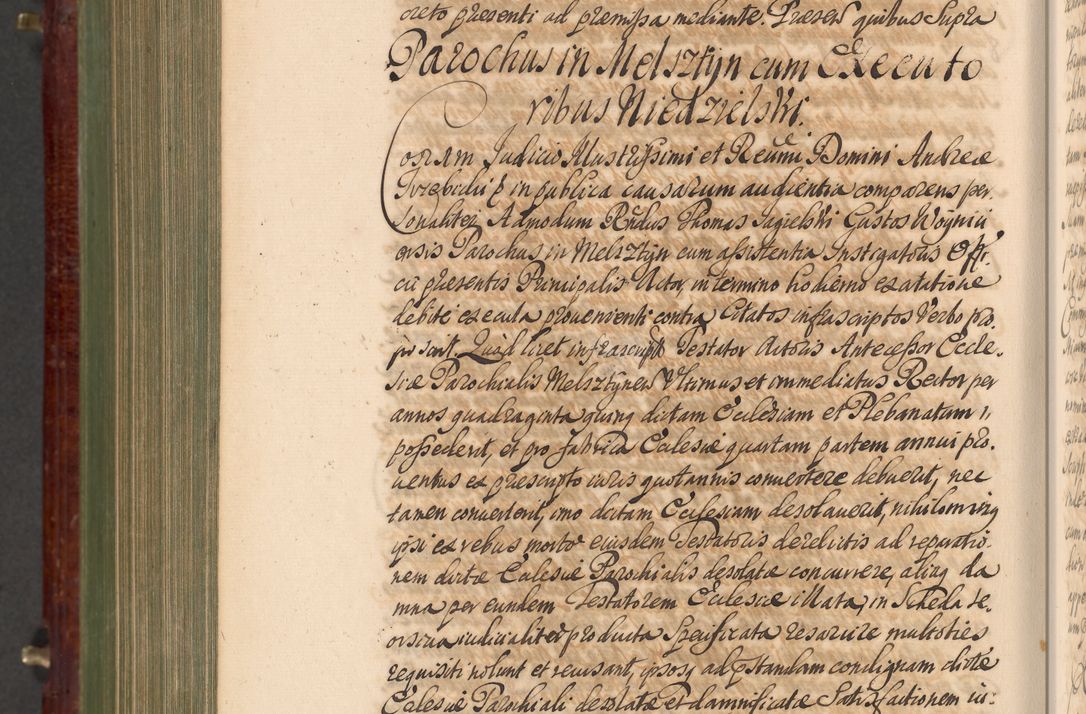 creto presenti ad præmissa mediante. Præsen quibus Supra
Parochus in Melsztyn cum Executo
ribus Niedzielski.
Coram Judicio Illustrissimi et Reumi Domini Andreæ
Trzebicki &c in publica causarum audientia comparens per
sonaliter Admodum Rndus Thomas Jagielski Custos Woynici
ensis Parochus in Melsztyn cum assistentia Instigatoris Offi.
cii præsentis Principalis Actor, in termino hodierno ex citatione
debite executa provenienti contra Citatos infrascriptos Verbo pro.
posuit. Quod licet infrascriptus Testator Actoris Antecessor Eccle.
siæ Parochialis Melsztynen Vltimus et immediatus Rector per
annos quadraginta quinq dictam Ecclesiam et Plebanatum
possederit, et pro fabrica Ecclesiæ quartam partem annui pro.
uentus ex præscripto iuris quotannis conuertere debuerit, nec
tamen conuerterit, imo dictam Ecclesiam desolauerit, nihilominq
ipsi ex rebus mortæ eiusdem Testatoris derelictis ad reparatio.
nem dictæ Ecclesiæ Parochialis desolatæ concurrere, aliaq da
mna per eundem Testatorem Ecclesiæ illata, in Scheda se.
orsiua iudicialiter producta Specificata resarcire multoties
requisiti nolunt et recusant, ipsosq ad præstandam condignam dictæ
Ecclesiæ Parochiali desolatæ et damnificatæ Satisfactionem iu: